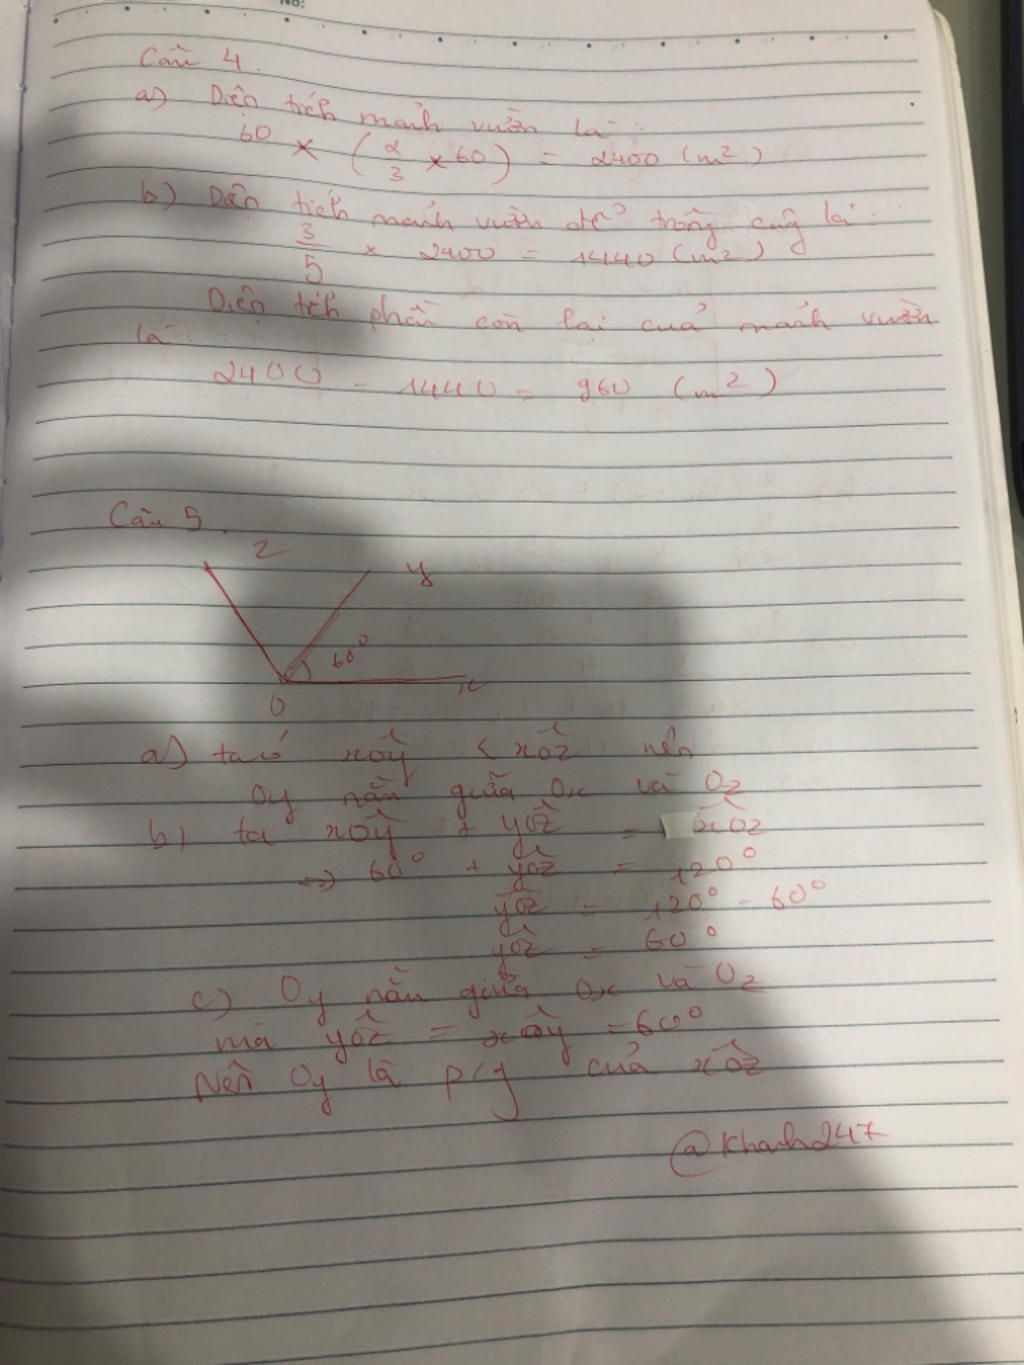 No:
Câu 4.
a) Diện tích mảnh vườn là:
60 × (2/3 × 60) = 2400 (m²)
b) Diện tích mảnh vườn để trồng cây là:
3/5 × 2400 = 1440 (m²)
Diện tích phần còn lại của mảnh vườn
là:
2400 - 1440 = 960 (m²)
Câu 5.
z y
60°
O x
a) ta có xôy < xôz nên
Oy nằm giữa Ox và Oz
b) ta xôy + yôz = xôz
=> 60° + yôz = 120°
yôz = 120° - 60°
yôz = 60°
c) Oy nằm giữa Ox và Oz
mà yôz = xôy = 60°
Nên Oy là p/g của xôz
@Khanh247